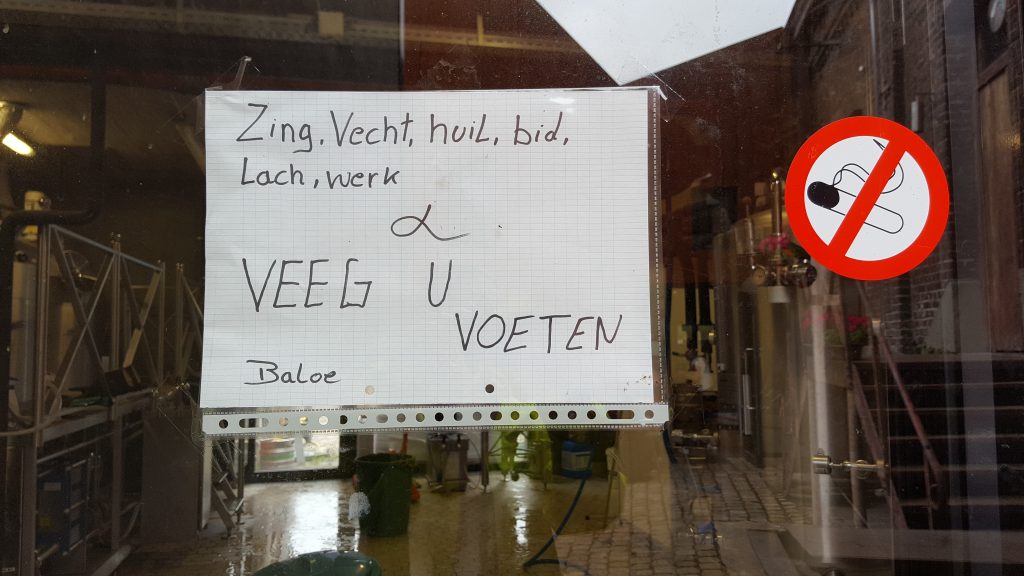 Zing, Vecht, huil, bid,
Lach, werk
&
VEEG U
VOETEN
Baloe